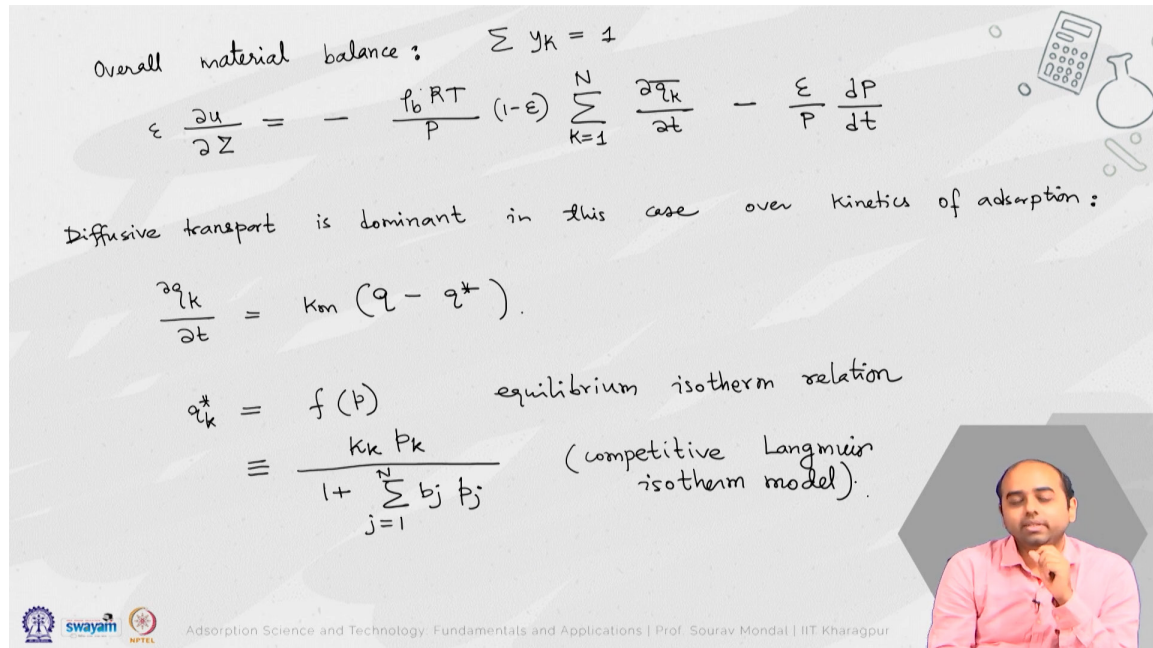 Overall material balance : Σ yK = 1
ε ∂u/∂Z = - ρb RT/P (1-ε) Σ_{K=1}^{N} ∂q̅k/∂t - ε/P dP/dt
Diffusive transport is dominant in this case over kinetics of adsorption :
∂qk/∂t = km (q - q*).
qk* = f(p) equilibrium isotherm relation
≡ Kk pk / (1+ Σ_{j=1}^{N} bj pj) (competitive Langmuir
isotherm model).
swayam
NPTEL
Adsorption Science and Technology: Fundamentals and Applications | Prof. Sourav Mondal | IIT Kharagpur